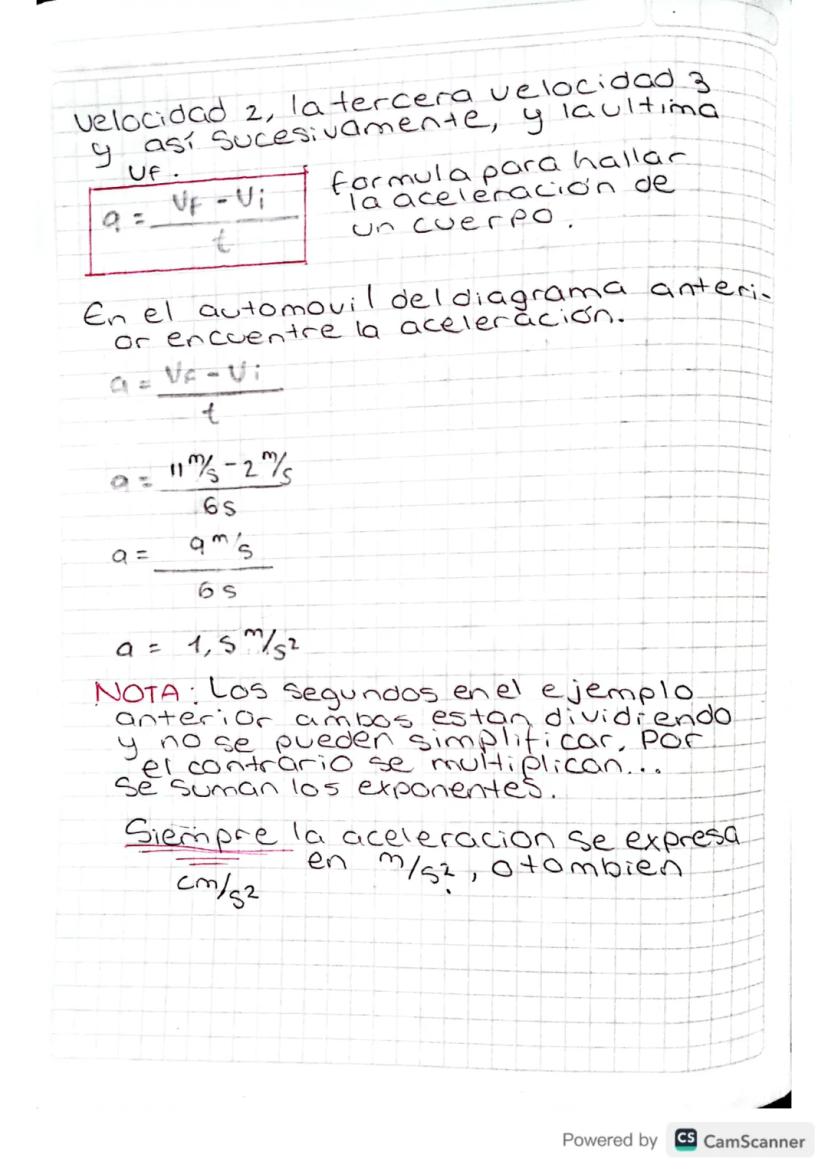 velocidad 2, la tercera velocidad 3
y así sucesivamente, y la ultima
VF.
a = VF - Vi / t
formula para hallar
la aceleración de
un cuerpo.
En el automovil del diagrama anteri-
or encuentre la aceleración.
a = VF - Vi / t
a = 11 m/s - 2 m/s / 6s
a = 9 m/s / 6s
a = 1,5 m/s²
NOTA: Los segundos en el ejemplo
anterior ambos estan dividiendo
y no se pueden simplificar. Por
el contrario se multiplican...
se suman los exponentes.
Siempre la aceleracion se expresa
en m/s², o tambien
cm/s².
Powered by CS CamScanner